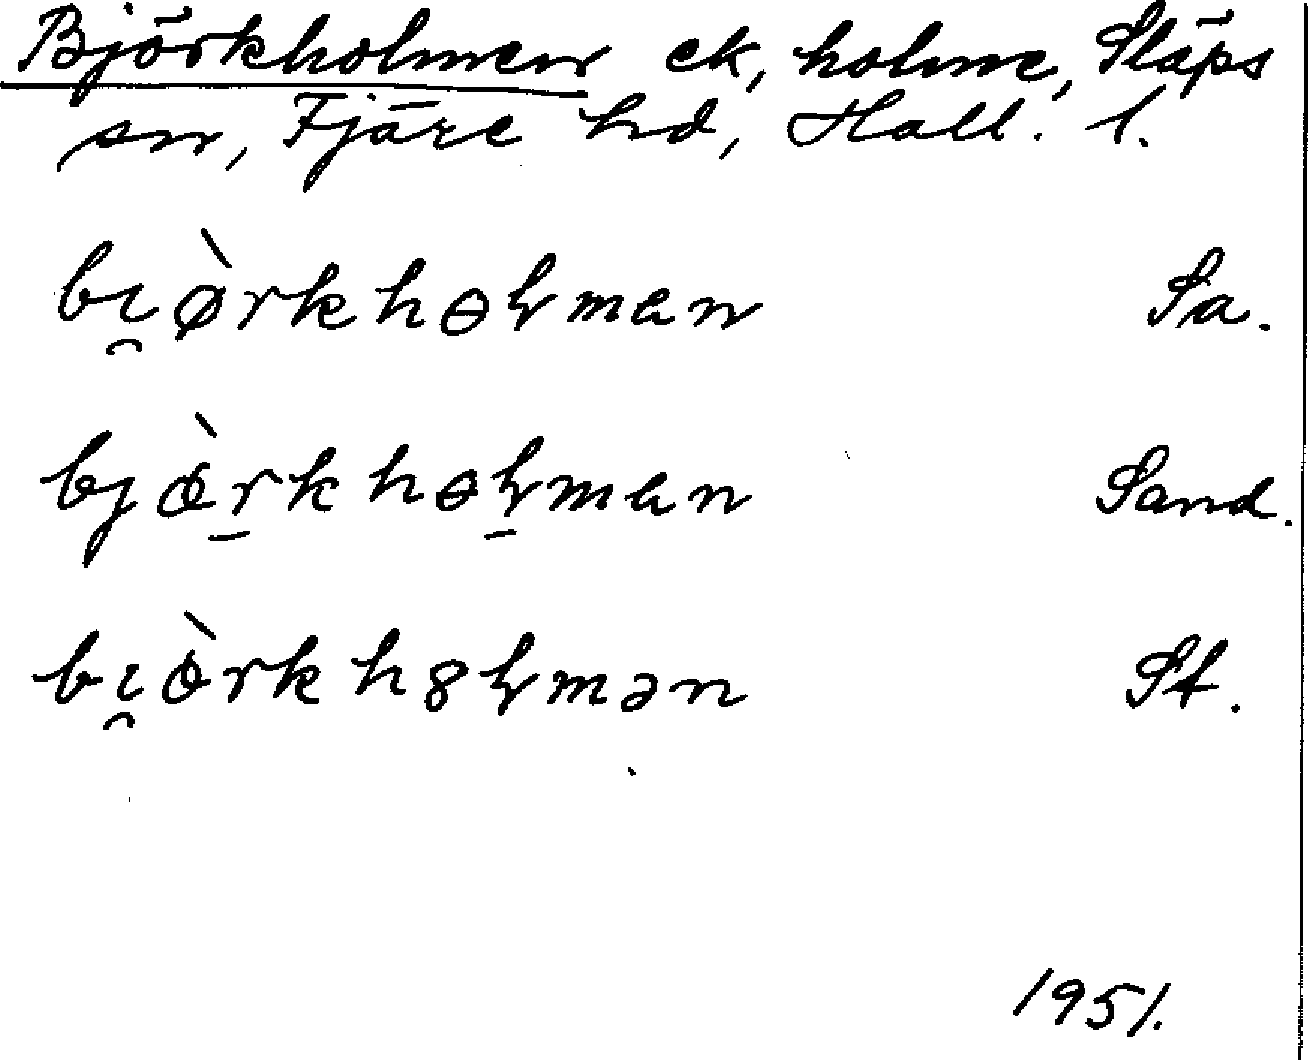 Björkholmen ek, holme, Släps
sn, Fjäre hd, Hall. l.
bı̯ø̀rkhɵɫman Sa.
bjö̀r̲khɵɫ̲man Sand.
bı̯ö̀rkh8ɫmən St.
1951.